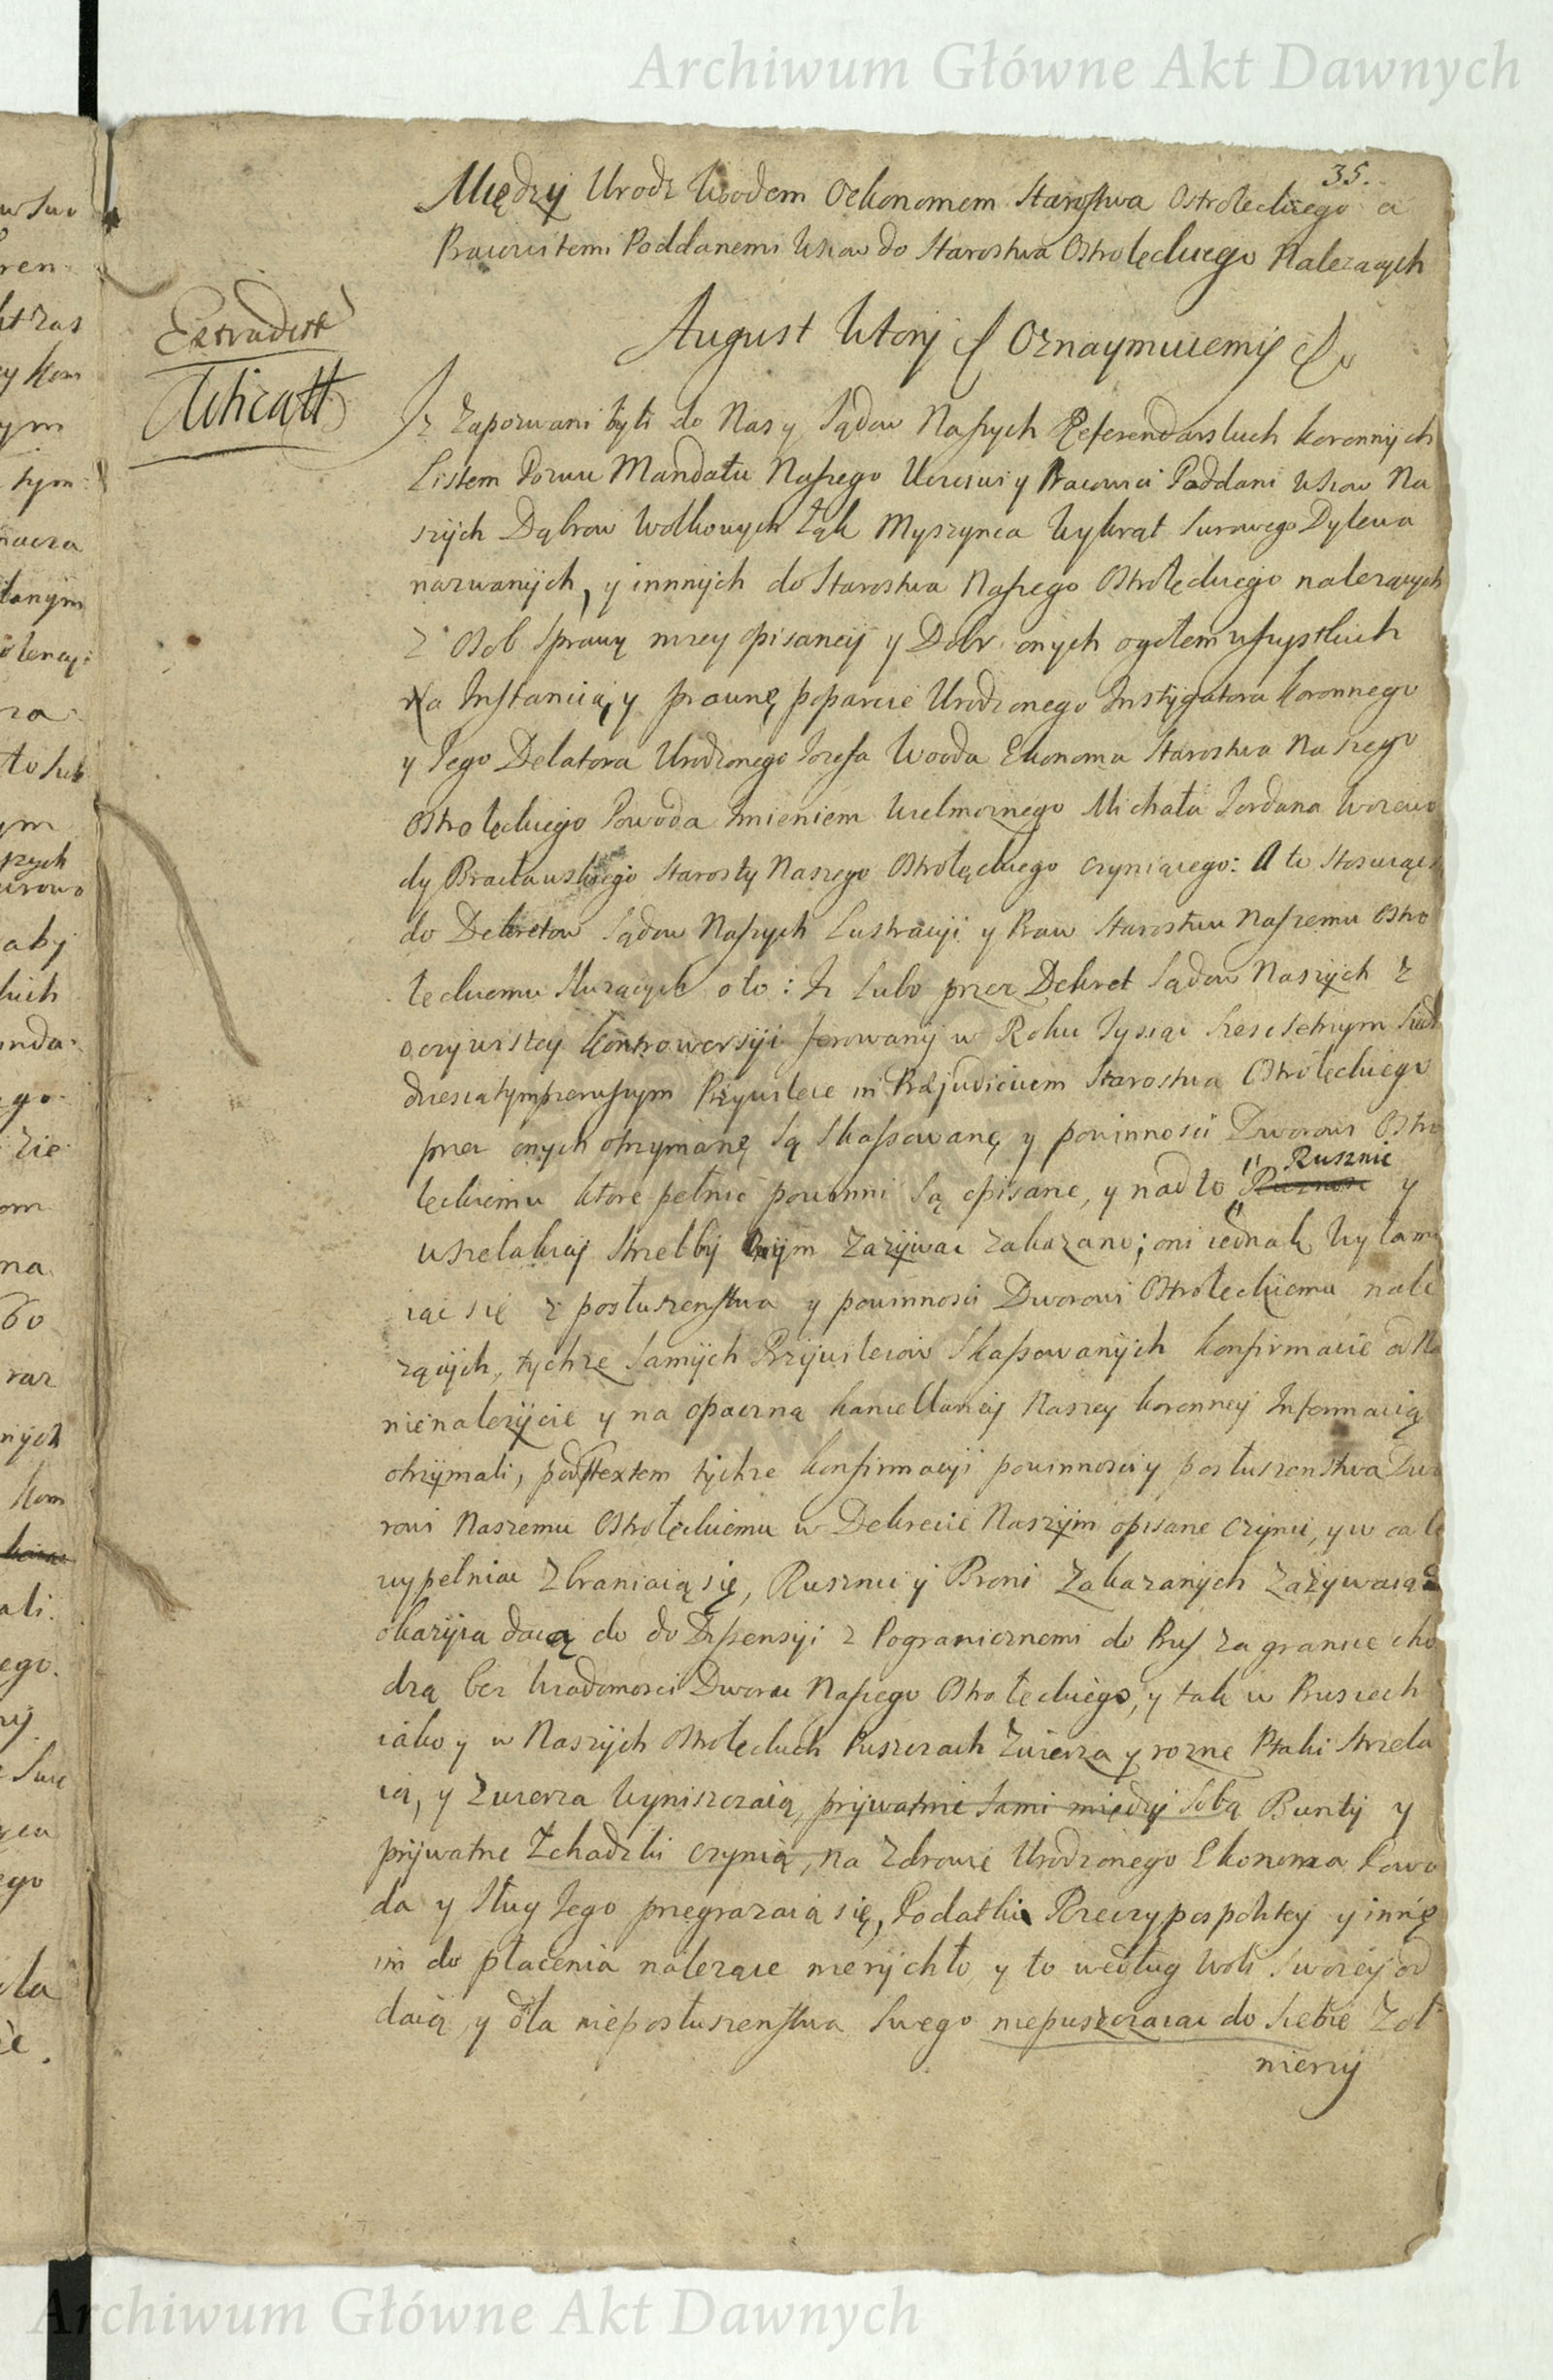 Archiwum Główne Akt Dawnych
35.
Między Urodz Woodem Oekonomem Starostwa Ostroleckiego a
Pracowitemi Poddanemi Wsiow do Starostwa Ostrołęckiego Nalezących
Extradit
August Wtory Oznaymuiemy
Iz Zapozwani byli do Nas y Sądow Naszych Referendarskich koronnych
Listem Pozwu Mandatu Naszego Uczciwi y Pracowici Poddani Wsiow Na
szych Dąbrow Wolkowych Łąk Myszynca Wykrąt Surowego Dylewa
nazwanych, y innnych do Starostwa Naszego Ostrołęckiego nalezących
z Osob Sprawy nizey opisaney y Dobr onych ogołem wszystkich
Na Instancią y prawnę poparcie Urodzonego Instygatora koronnego
y Jego Delatora Urodzonego Jozefa Wooda Ekonoma Starostwa Naszego
Ostrołęckiego Powoda Imieniem Wielmoznego Michała Jordana Woiewo
dy Bracławskiego Starosty Naszego Ostrołęckiego czyniącego: A to stosuiąc
do Dekretow Sądow Naszych Lustracyi y Praw Starostwu Naszemu Ostro
łęckiemu służących o to: Iz lubo przez Dekret Sądow Naszych z
oczywistey kontrowersyi ferowany w Roku Tysiąc Szescsetnym Siedm
dziesiatympierwszym Przywileie in Præjudicium Starostwa Ostrołęckiego
przez onych otrzymanę są Skassowanę y powinnosci Dworowi Ostro
łęckiemu ktore pełnic powinni są opisane, y nadto Rusznic y
wszelakiey strzelby onym Zazywac zakazano; oni iednak wyłamu
iąc się z posłuszenstwa y powinnosci Dworowi Ostrołeckiemu nale
zących, tychze samych Przywileiow Skassowanych konfirmacie od Nas
nienalezycie y na opaczną kancellaryi Naszey koronney Informacią
otrzymali, pod textem tychze konfirmacyi powinnosci y posłuszenstwa Dwo
rowi Naszemu Ostrołęckiemu w Dekrecie Naszym opisane czynic, y w cale
wypełniac Zbraniaią się, Rusznic y Broni Zakazanych Zazywaią
okazyia daią do do Dyspensyi z Pograniecznemi do Prus za granice cho
dzą bez wiadomosci Dworu Naszego Ostrołeckiego, y tak w Prusiech
iako y w Naszych Ostrołęckich Puszczach Zwierza y rozne Ptaki strzela
ią, y Zwierza wyniszczaią, prywatnie sami między sobą Bunty y
prywatne Zchadzki czynią, na Zdrowie Urodzonego Ekonoma Powo
da y Sług Jego przegrazaią się, Podatki Rzeczypospolitey y innę
im do płacenia nalezące nierychło y to według woli swoiey od
daią y dla nieposłuszenstwa swego niepuszczaiac do siebie Zoł
nierzy
Archiwum Główne Akt Dawnych